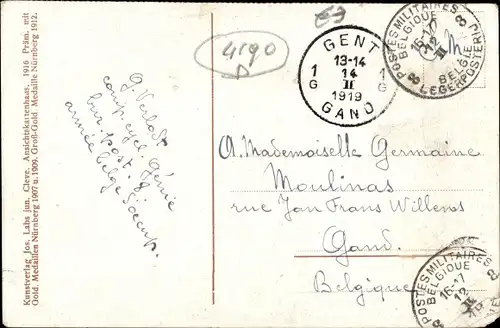 Kunstverlag Jos. Labs jun. Cleve. Ansichtskartenhaus. 1916 Präm. mit
Gold. Medaillen Nürnberg 1907 u. 1909. Groß-Gold. Medaille Nürnberg 1912.
4190
GENT 1
13-14
14
II
1919
1 G
1 G
GAND
POSTES MILITAIRES
BELGIQUE
8
16-17
12
II
BELG
LEGERPOSTERIJ
8
G. Verlodt
comp. Génie
bur. post. 8
armée belge
A Mademoiselle Germaine
Moulinas
rue Jan Frans Willems
Gand
Belgique
POSTES MILITAIRES
BELGIQUE
8
16-17
12
II
8